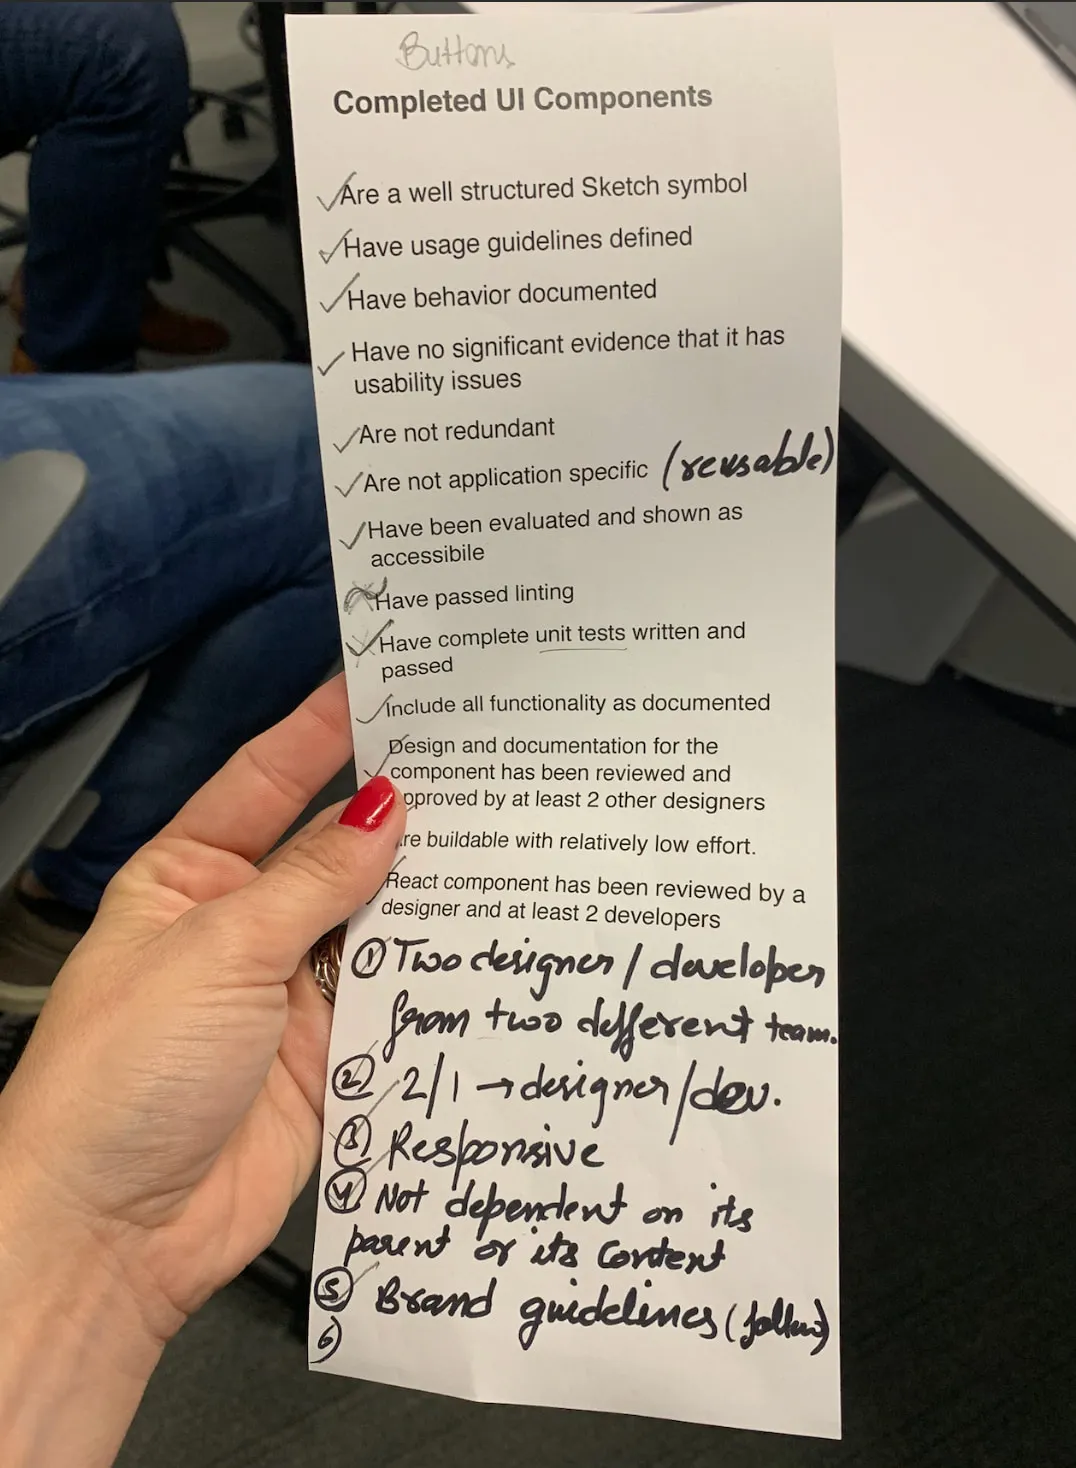 Buttons
Completed UI Components
Are a well structured Sketch symbol
Have usage guidelines defined
Have behavior documented
Have no significant evidence that it has
usability issues
Are not redundant
Are not application specific (reusable)
Have been evaluated and shown as
accessibile
Have passed linting
Have complete unit tests written and
passed
Include all functionality as documented
Design and documentation for the
component has been reviewed and
pproved by at least 2 other designers
re buildable with relatively low effort.
React component has been reviewed by a
designer and at least 2 developers
① Two designer / developer
from two different team.
② 2/1 → designer/dev.
③ Responsive
④ Not dependent on its
parent or its content
⑤ Brand guidelines (follow)
6)